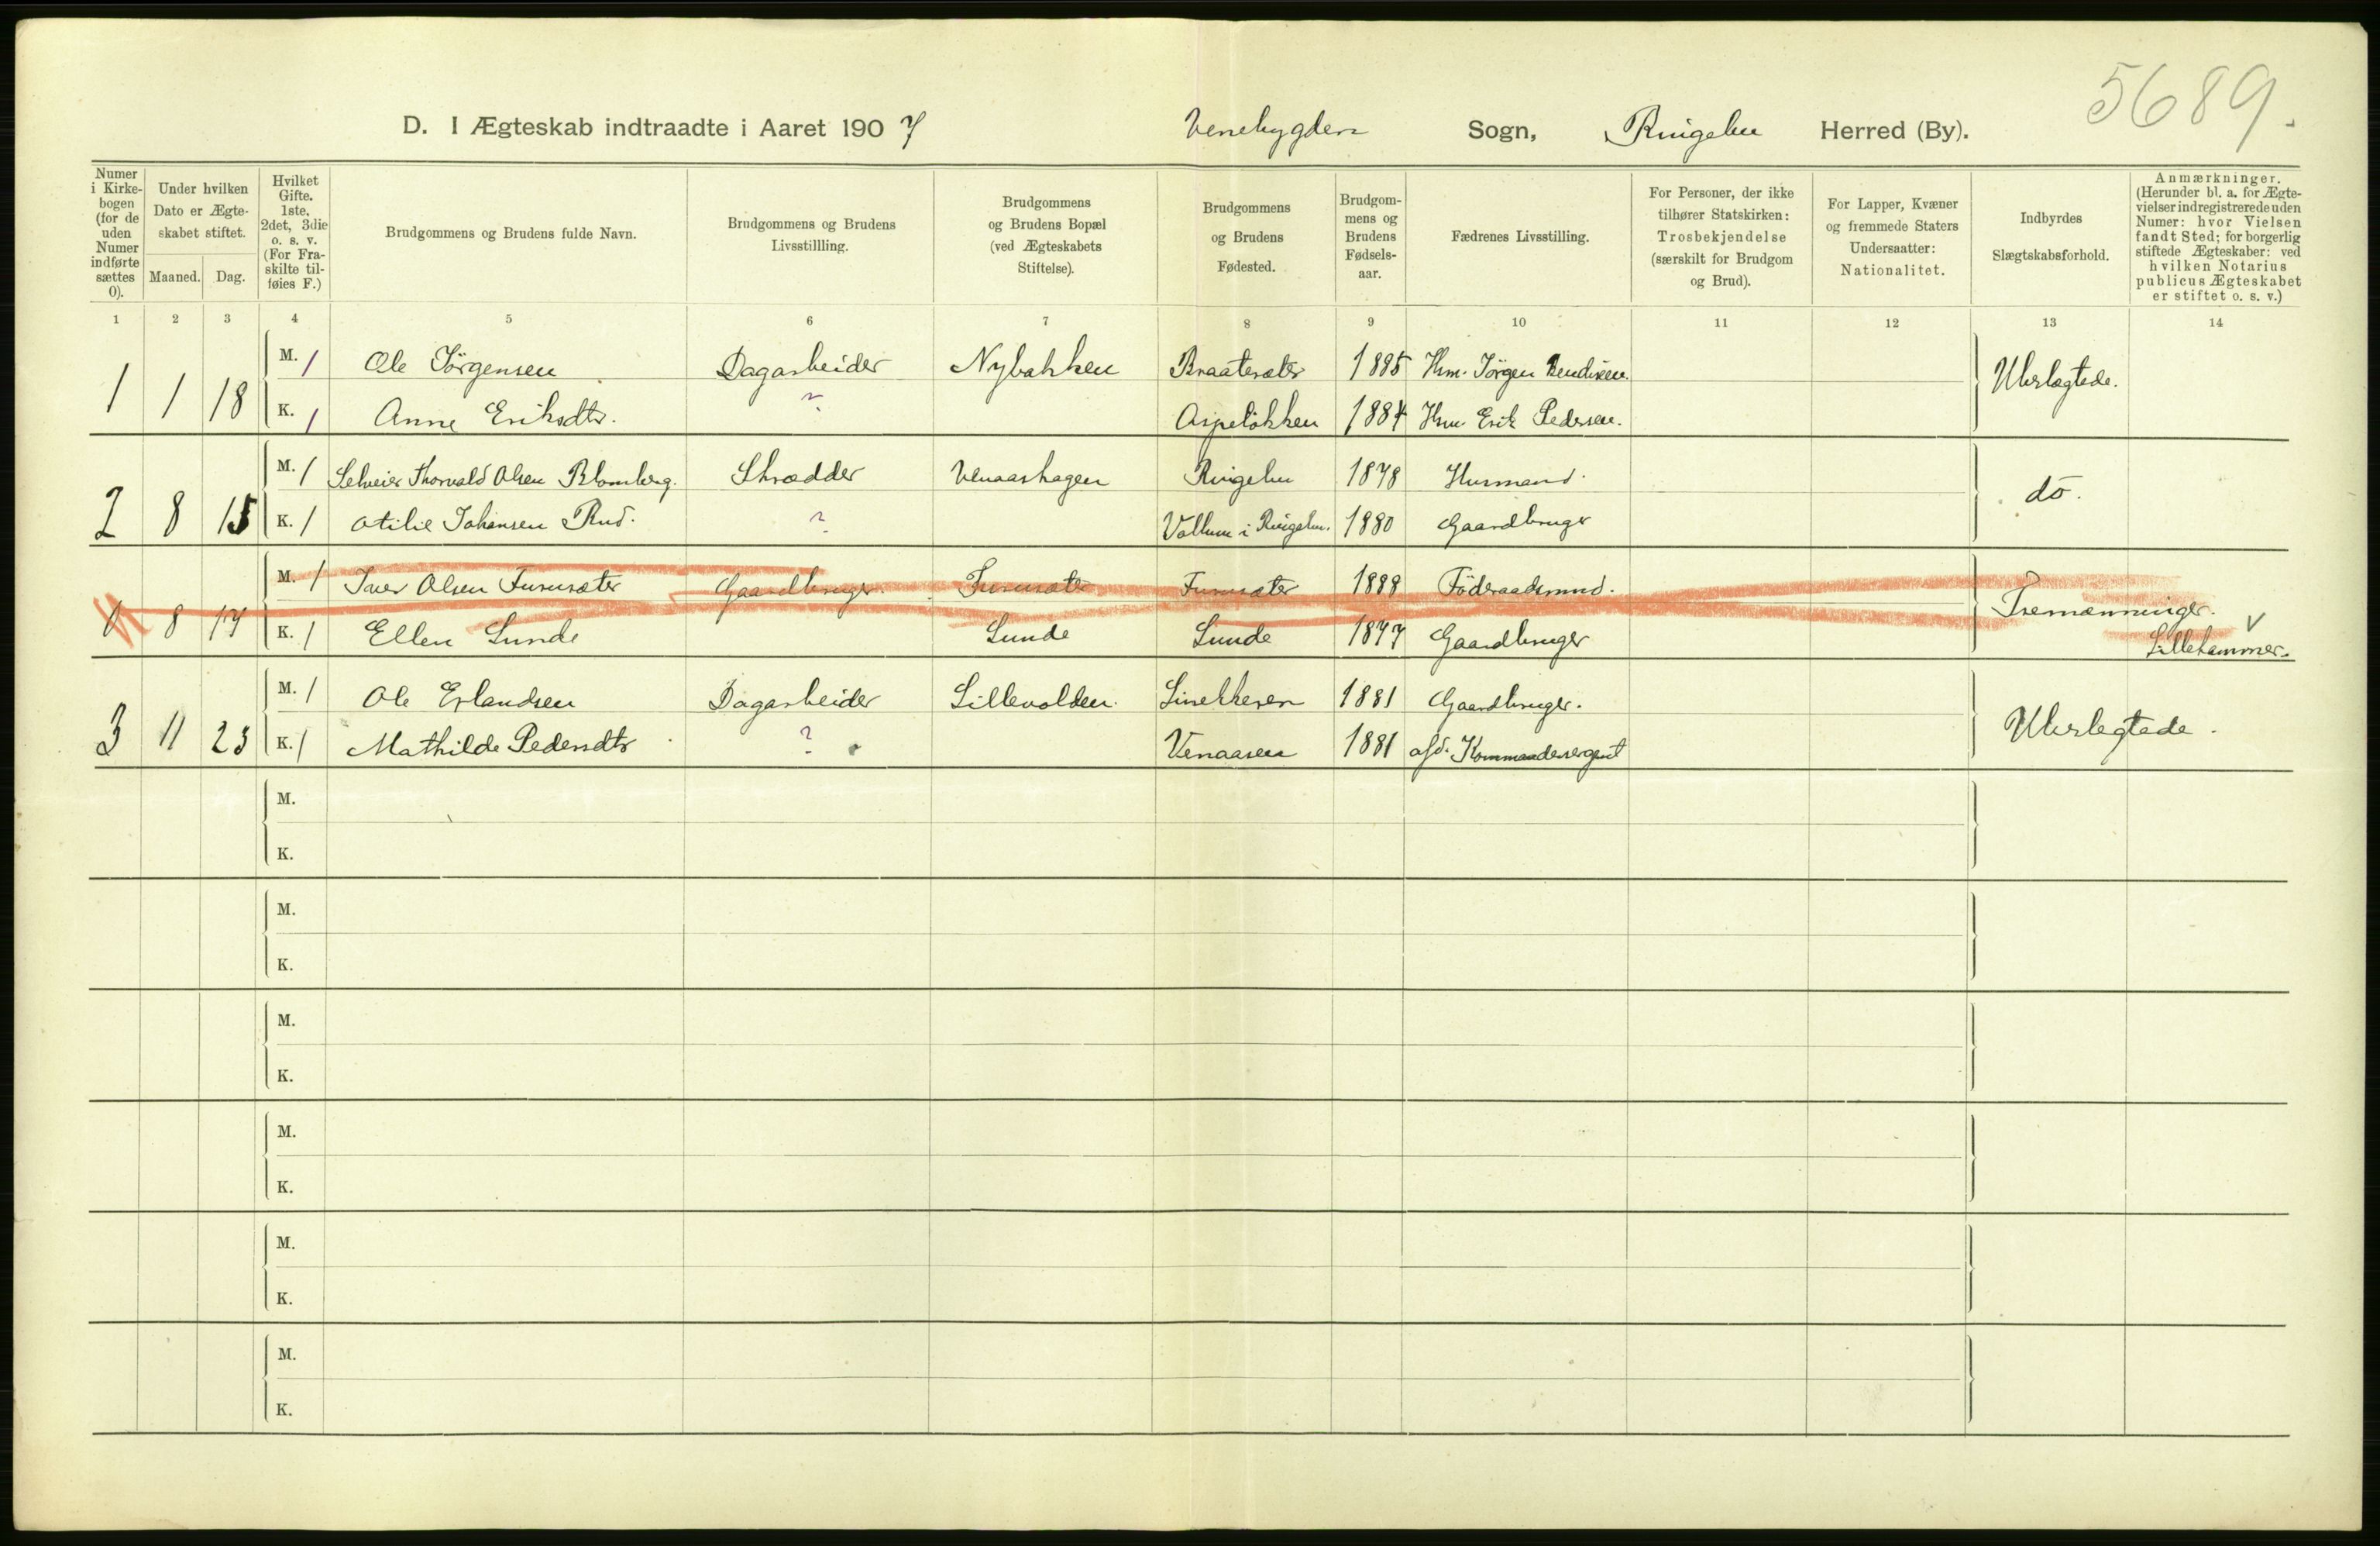 5689.
D. I Ægteskab indtraadte i Aaret 1907 Venebygden Sogn, Ringebu Herred (By).
Numer i Kirke-bogen (for de uden Numer indførte sættes 0).
Under hvilken Dato er Ægte-skabet stiftet.
Maaned. Dag.
Hvilket Gifte. 1ste, 2det, 3die o. s. v. (For Fra-skilte til-føies F.)
Brudgommens og Brudens fulde Navn.
Brudgommens og Brudens Livsstillling.
Brudgommens og Brudens Bopæl (ved Ægteskabets Stiftelse).
Brudgommens og Brudens Fødested.
Brudgom-mens og Brudens Fødsels-aar.
Fædrenes Livsstilling.
For Personer, der ikke tilhører Statskirken: Trosbekjendelse (særskilt for Brudgom og Brud).
For Lapper, Kvæner og fremmede Staters Undersaatter: Nationalitet.
Indbyrdes Slægtskabsforhold.
Anmærkninger. (Herunder bl. a. for Ægte-vielser indregistrerede uden Numer: hvor Vielsen fandt Sted; for borgerlig stiftede Ægteskaber: ved hvilken Notarius publicus Ægteskabet er stiftet o. s. v.)
1 2 3 4 5 6 7 8 9 10 11 12 13 14
M. 1 Ole Jörgensen Dagarbeider Nybakken Braatesæter 1885 Hsm. Jörgen Bendixen.
1 1 18 Ubeslægtede.
K. 1 Anne Eriksdtr. ? Aspelökken 1884 Hsm. Erik Pedersen.
M. 1 Selveier Thorvald Olsen Blomberg. Skrædder Venaashagen Ringebu 1878 Husmand.
2 8 15 do.
K. 1 Otilie Johansen Rud. ? Vallum i Ringebu. 1880 Gaardbruger
M. 1 Iver Olsen Furusæter Gaardbruger. Furusæter Furusæter 1888 Föderaadsmand.
0 8 17 Tremænninger. V
K. 1 Ellen Lunde Lunde Lunde 1877 Gaardbruger Lillehammer.
M. 1 Ole Erlandsen Dagarbeider Lillevolden. 1881 Gaardbruger.
3 11 23 Ubeslegtede.
K. 1 Mathilde Pedersdtr ? Venaasen 1881 afd. Kommandersergent
M.
K.
M.
K.
M.
K.
M.
K.
M.
K.
M.
K.